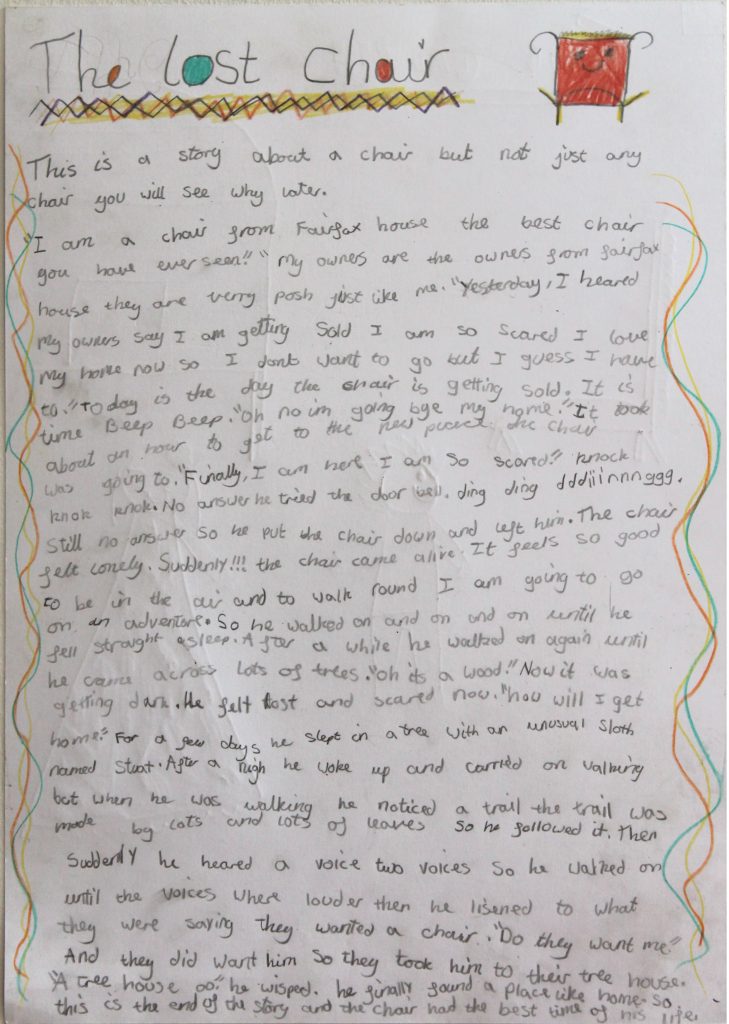 The lost Chair
This is a story about a chair but not just any
chair you will see why later.
"I am a chair from Fairfax house the best chair
you have ever seen!!" "My owners are the owners from fairfax
house they are verry posh just like me. "Yesterday, I heared
my owners say I am getting Sold I am so scared I love
my home now so I dont want to go but I guess I have
to." Today is the day the chair is getting sold. It is
time Beep Beep. "Oh no im going bye my home." It took
about an hour to get to the new the chair
was going to. "Finally, I am here I am so scared!" knock
knok knok. No answer he tried the door bell. ding ding dddiiinnnggg.
Still no answer so he put the chair down and left him. The chair
felt lonely. Suddenly!!! the chair came alive. It feels so good
to be in the air and to walk round I am going to go
on an adventure. So he walked on and on and on until he
fell straught asleep. After a while he walked on again until
he came across lots of trees. "oh its a wood." Now it was
getting dark. He felt lost and scared now. "how will I get
home." For a few days he slept in a tree with an unusual Sloth
named Stuat. After a nigh he woke up and carried on walking
but when he was walking he noticed a trail the trail was
made by lots and lots of leaves So he followed it. Then
Suddenly he heared a voice two voices So he walked on
until the voices where louder then he lisened to what
they were saying they wanted a chair. "Do they want me."
And they did want him So they took him to their tree house.
"A tree house oo." he wisped. he finally found a place like home. So
this is the end of the story and the chair had the best time of his life.